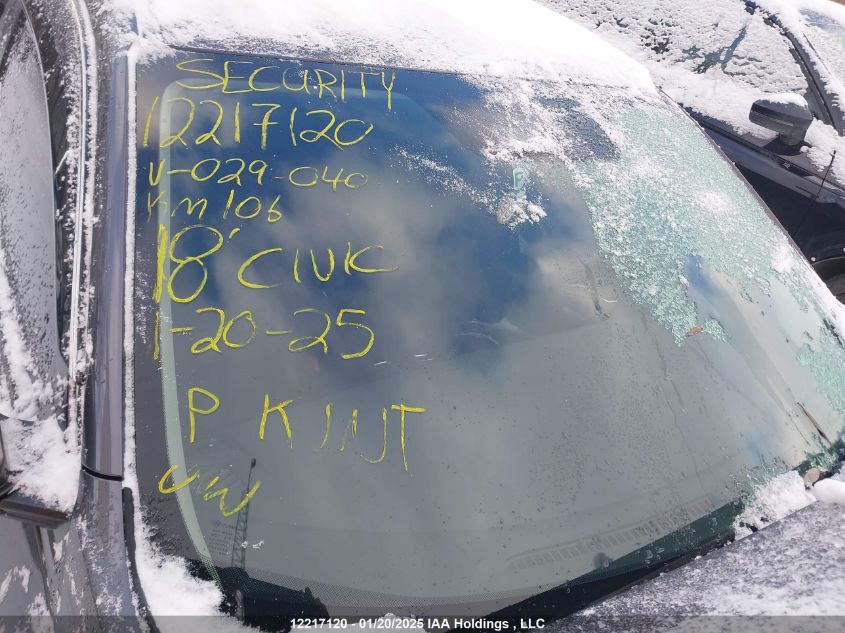 SECURITY
12217120
V-029-040
KM 106
18' CIVIC
1-20-25
P K
12217120 - 01/20/2025 IAA Holdings , LLC